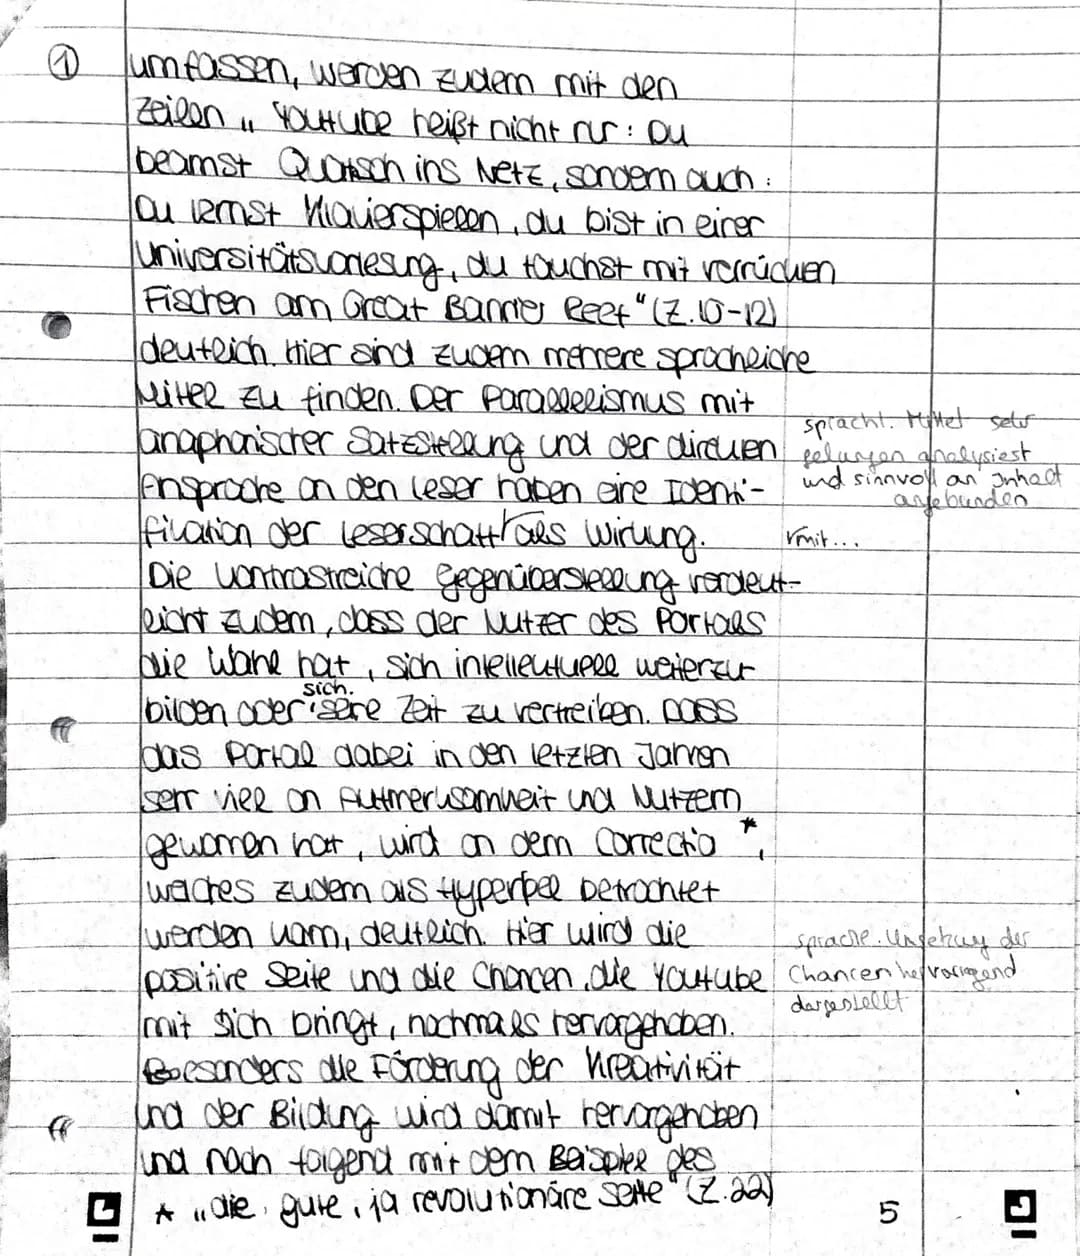 ① umfassen, werden zudem mit den
Zeilen „Youtube heißt nicht nur: Du
beamst Quatsch ins Netz, sondern auch:
Du lernst Klavierspielen, du bist in einer
Universitätsvorlesung, du tauchst mit verrückten
Fischen am Great Barrier Reef" (Z.10-12)
deutlich. Hier sind zudem mehrere sprachliche
Mittel zu finden. Der Parallelismus mit
anaphorischer Satzstellung und der direkten
Ansprache an den Leser haben eine Identi-
fikation der Leserschaft √ als Wirkung.
Die kontrastreiche Gegenüberstellung verdeut-
licht zudem, dass der Nutzer des Portals
die Wahl hat, sich intellektuell weiterzu
bilden oder sich seine Zeit zu vertreiben. Dass
das Portal dabei in den letzten Jahren
sehr viel an Aufmerksamkeit und Nutzern
gewonnen hat, wird an dem Correctio *,
welches zudem als Hyperbel betrachtet
werden kann, deutlich. Hier wird die
positive Seite und die Chancen, die Youtube
mit sich bringt, nochmals hervorgehoben.
Besonders die Förderung der Kreativität
und der Bildung wird damit hervorgehoben
und noch folgend mit dem Beispiel des
* „die gute, ja revolutionäre Seite" (Z.22)
sprachl. Mittel sehr
gelungen analysiert
und sinnvoll an Inhalt
angebunden
√mit...
sprachl. Umsetzung der
Chancen hervorragend
dargestellt
5